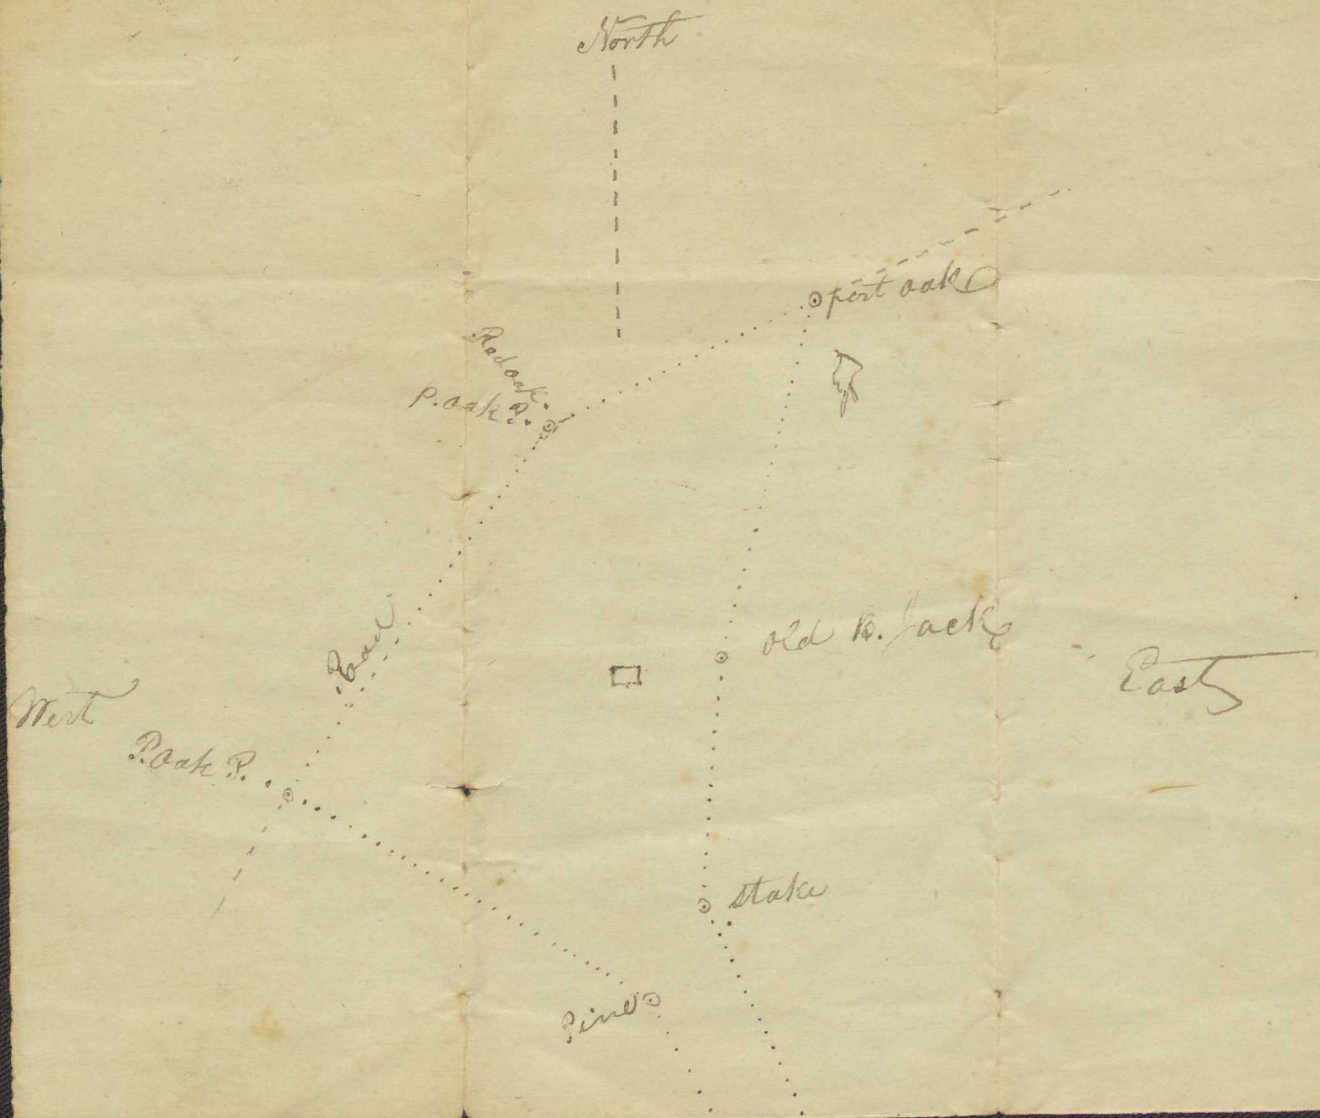 North
post oak
Redoak.
P. oak P.
old B. Jack
Road
East
West
P. Oak P.
stake
Pine